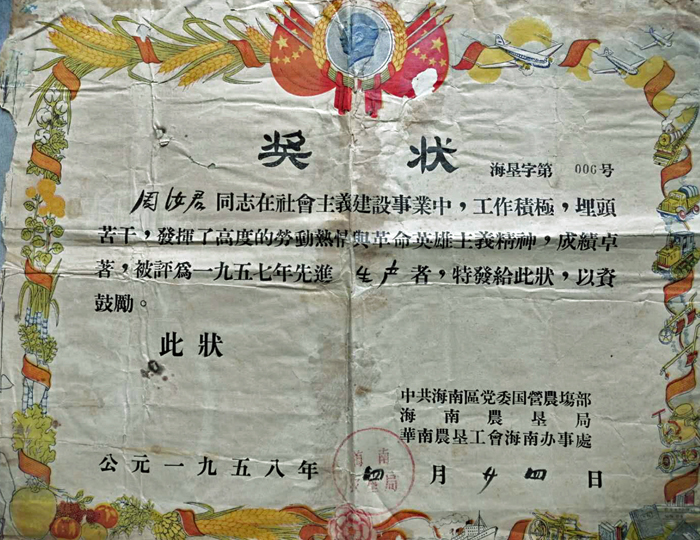 奖状
海垦字第 006号
周汝君同志在社會主义建設事業中，工作積極，埋頭
苦干，發揮了高度的勞動熱情與革命英雄主義精神，成績卓
著，被評爲一九五七年先進 生产 者，特發給此狀，以資
鼓勵。
此狀
中共海南區党委国营農塲部
海南農垦局
華南農垦工會海南办事處
公元一九五八年 四 月 廿四 日